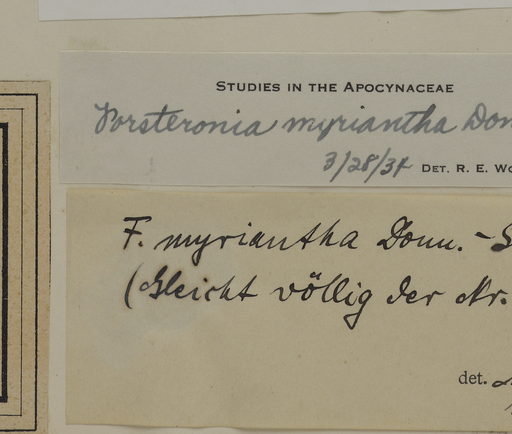 STUDIES IN THE APOCYNACEAE
Forsteronia myriantha Don
3/28/34 DET. R. E. Wo
F. myriantha Donn. - S
(Gleicht völlig der Nr.
det.